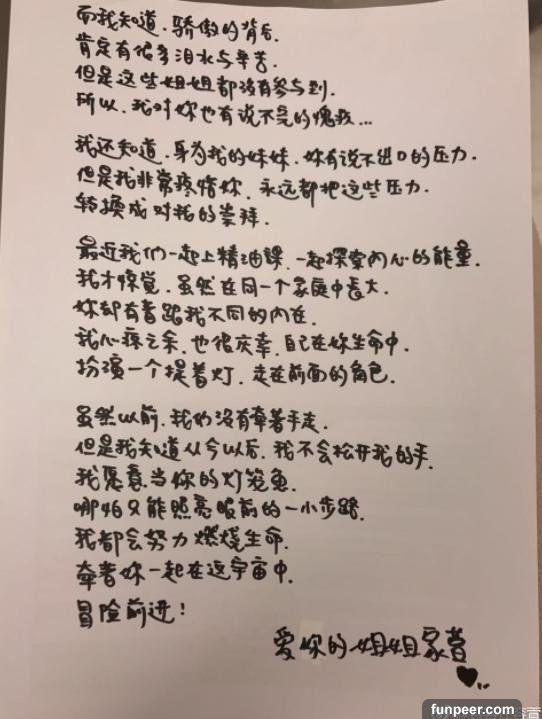 而我知道.骄傲的背后.
肯定有很多泪水与辛苦.
但是这些姐姐都没有参与到.
所以.我对妳也有说不完的愧疚...
我还知道.身为我的妹妹.妳有说不出口的压力.
但是我非常疼惜妳.永远都把这些压力.
转换成对我的崇拜.
最近我们一起上精油課.一起探索內心的能量.
我才惊觉.虽然在同一个家庭中長大.
妳却有着跟我不同的内在.
我心疼之余.也很庆幸.自己在妳生命中.
扮演一个提着灯.走在前面的角色.
虽然以前.我们没有牵着手走.
但是我知道从今以后.我不会松开我的手.
我愿意当你的灯笼鱼.
哪怕只能照亮眼前的一小步路.
我都会努力燃烧生命.
牵着妳一起在这宇宙中.
冒险前进!
爱妳的姐姐家萱
funpeer.com